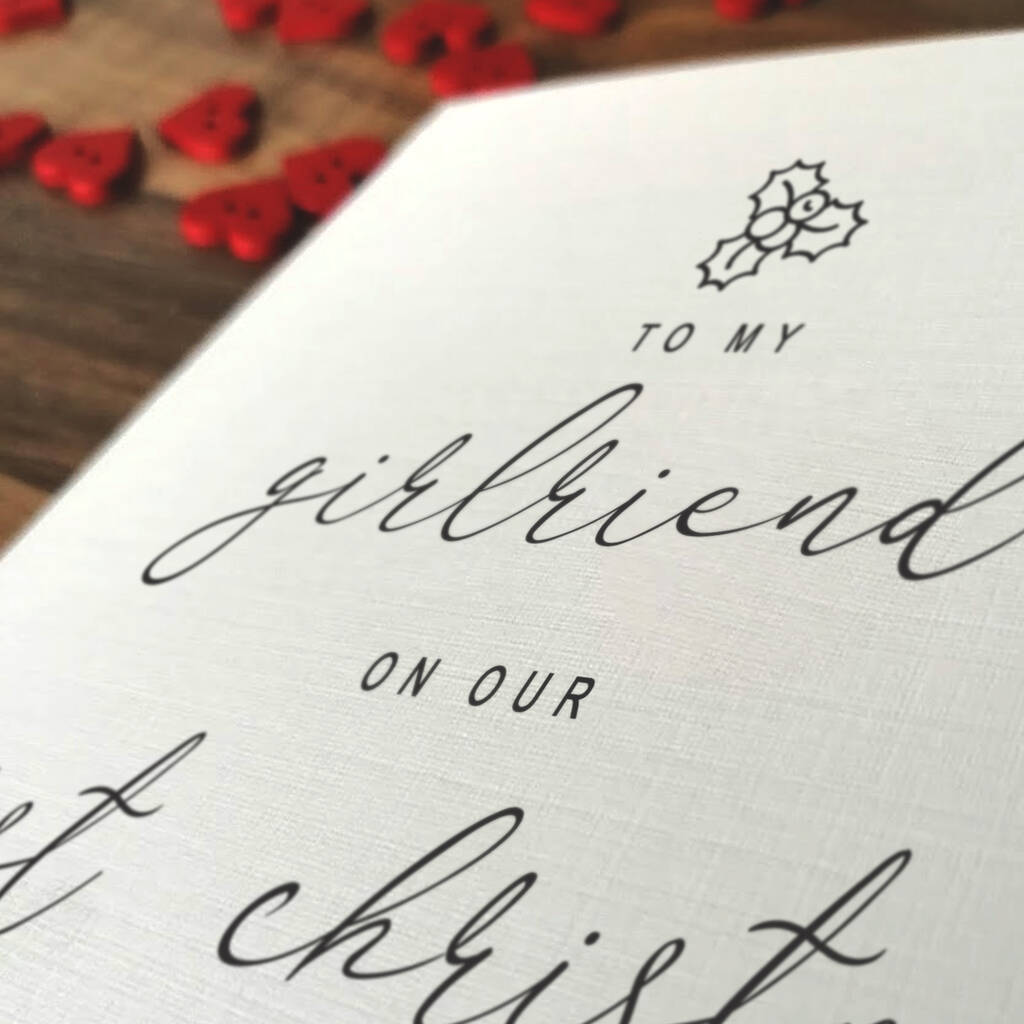 TO MY
girlriend
ON OUR
st christ